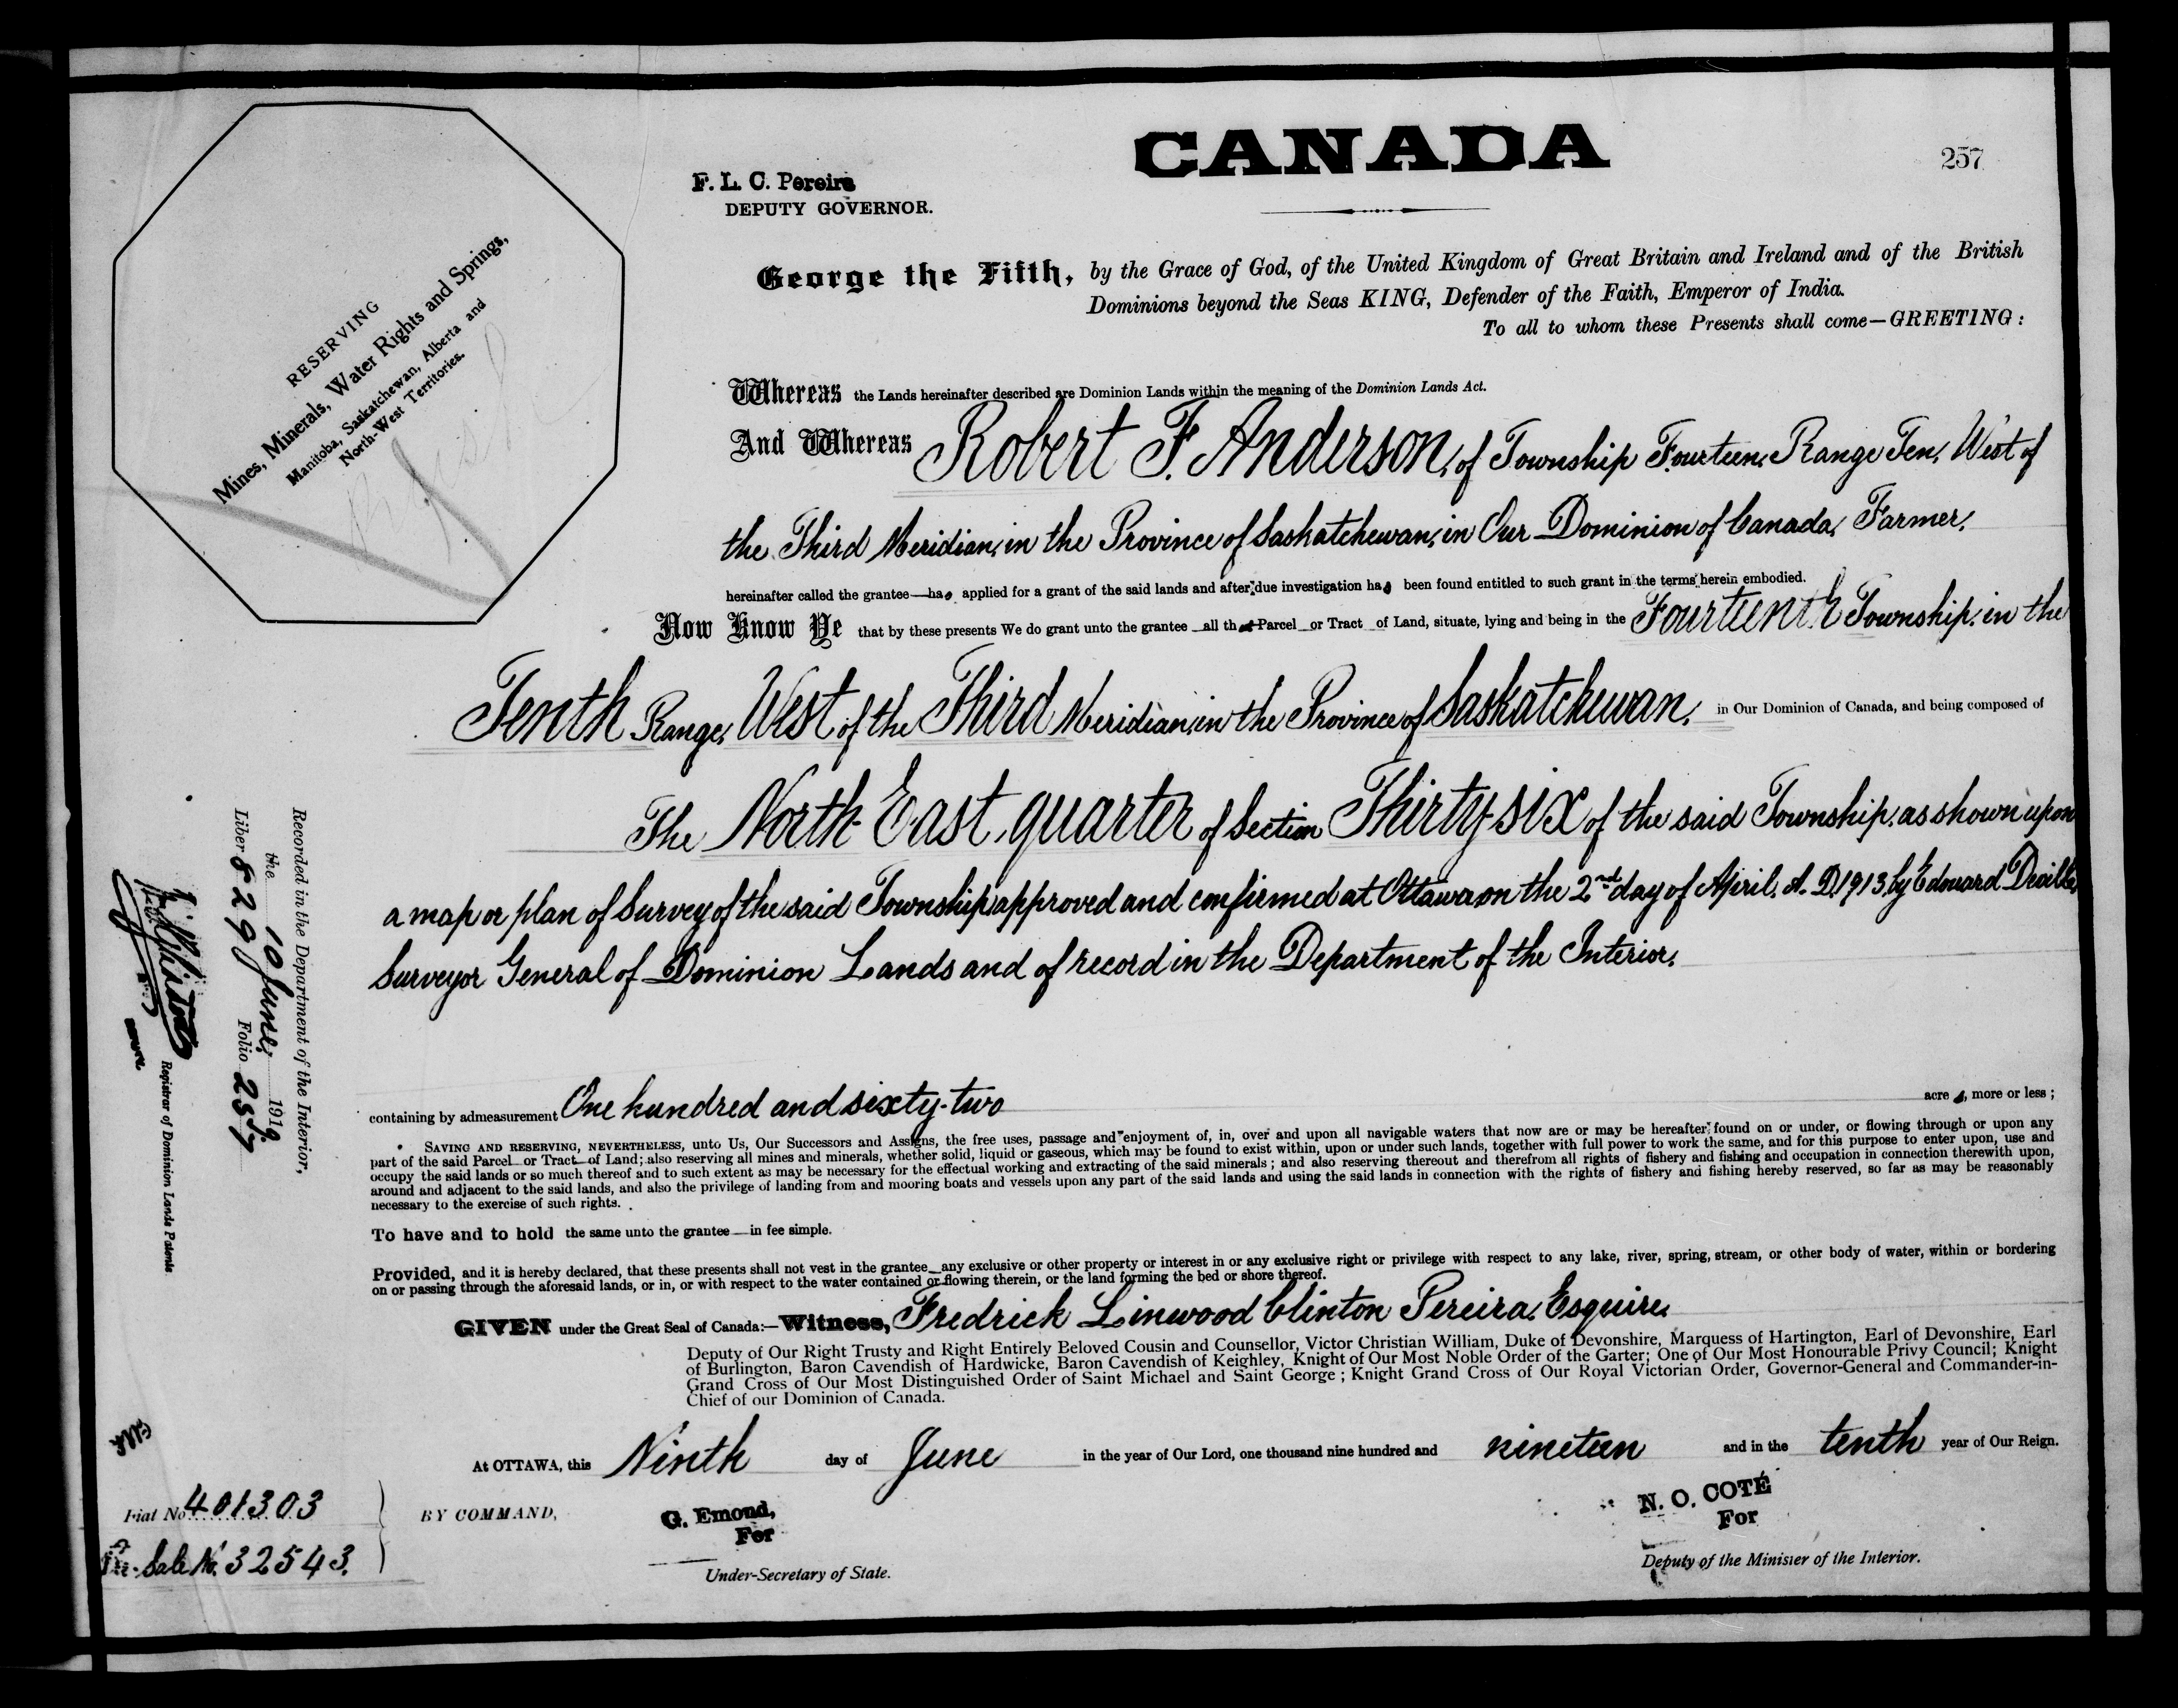 CANADA
257
F. L. C. Pereira
DEPUTY GOVERNOR.
RESERVING
Mines, Minerals, Water Rights and Springs,
Manitoba, Saskatchewan, Alberta and
North-West Territories.
George the Fifth, by the Grace of God, of the United Kingdom of Great Britain and Ireland and of the British
Dominions beyond the Seas KING, Defender of the Faith, Emperor of India.
To all to whom these Presents shall come—GREETING:
Whereas the Lands hereinafter described are Dominion Lands within the meaning of the Dominion Lands Act.
And Whereas Robert F. Anderson, of Township Fourteen, Range Ten, West of
the Third Meridian, in the Province of Saskatchewan, in Our Dominion of Canada, Farmer,
hereinafter called the grantee—has applied for a grant of the said lands and after due investigation has been found entitled to such grant in the terms herein embodied.
Now Know Ye that by these presents We do grant unto the grantee all that Parcel or Tract of Land, situate, lying and being in the Fourteenth Township, in the
Tenth Range, West of the Third Meridian, in the Province of Saskatchewan, in Our Dominion of Canada, and being composed of
The North East quarter of Section Thirty-six of the said Township, as shown upon
a map or plan of Survey of the said Township approved and confirmed at Ottawa on the 2nd day of April, A. D. 1913, by Edouard Deville,
Surveyor General of Dominion Lands and of record in the Department of the Interior,
containing by admeasurement One hundred and sixty-two acres, more or less;
SAVING AND RESERVING, NEVERTHELESS, unto Us, Our Successors and Assigns, the free uses, passage and enjoyment of, in, over and upon all navigable waters that now are or may be hereafter found on or under, or flowing through or upon any
part of the said Parcel or Tract of Land; also reserving all mines and minerals, whether solid, liquid or gaseous, which may be found to exist within, upon or under such lands, together with full power to work the same, and for this purpose to enter upon, use and
occupy the said lands or so much thereof and to such extent as may be necessary for the effectual working and extracting of the said minerals; and also reserving thereout and therefrom all rights of fishery and fishing and occupation in connection therewith upon,
around and adjacent to the said lands, and also the privilege of landing from and mooring boats and vessels upon any part of the said lands and using the said lands in connection with the rights of fishery and fishing hereby reserved, so far as may be reasonably
necessary to the exercise of such rights.
To have and to hold the same unto the grantee—in fee simple.
Provided, and it is hereby declared, that these presents shall not vest in the grantee any exclusive or other property or interest in or any exclusive right or privilege with respect to any lake, river, spring, stream, or other body of water, within or bordering
on or passing through the aforesaid lands, or in, or with respect to the water contained or flowing therein, or the land forming the bed or shore thereof.
GIVEN under the Great Seal of Canada:—Witness, Fredrick Linwood Clinton Pereira, Esquire,
Deputy of Our Right Trusty and Right Entirely Beloved Cousin and Counsellor, Victor Christian William, Duke of Devonshire, Marquess of Hartington, Earl of Devonshire, Earl
of Burlington, Baron Cavendish of Hardwicke, Baron Cavendish of Keighley, Knight of Our Most Noble Order of the Garter; One of Our Most Honourable Privy Council; Knight
Grand Cross of Our Most Distinguished Order of Saint Michael and Saint George; Knight Grand Cross of Our Royal Victorian Order, Governor-General and Commander-in-
Chief of our Dominion of Canada.
At OTTAWA, this Ninth day of June in the year of Our Lord, one thousand nine hundred and nineteen and in the tenth year of Our Reign.
Fiat No. 401303
Sale No. 32543.
BY COMMAND,
G. Emond,
For
Under-Secretary of State.
N. O. COTÉ
For
Deputy of the Minister of the Interior.
Recorded in the Department of the Interior,
the 10 June, 1919
Liber 829 Folio 257
Registrar of Dominion Lands Patents